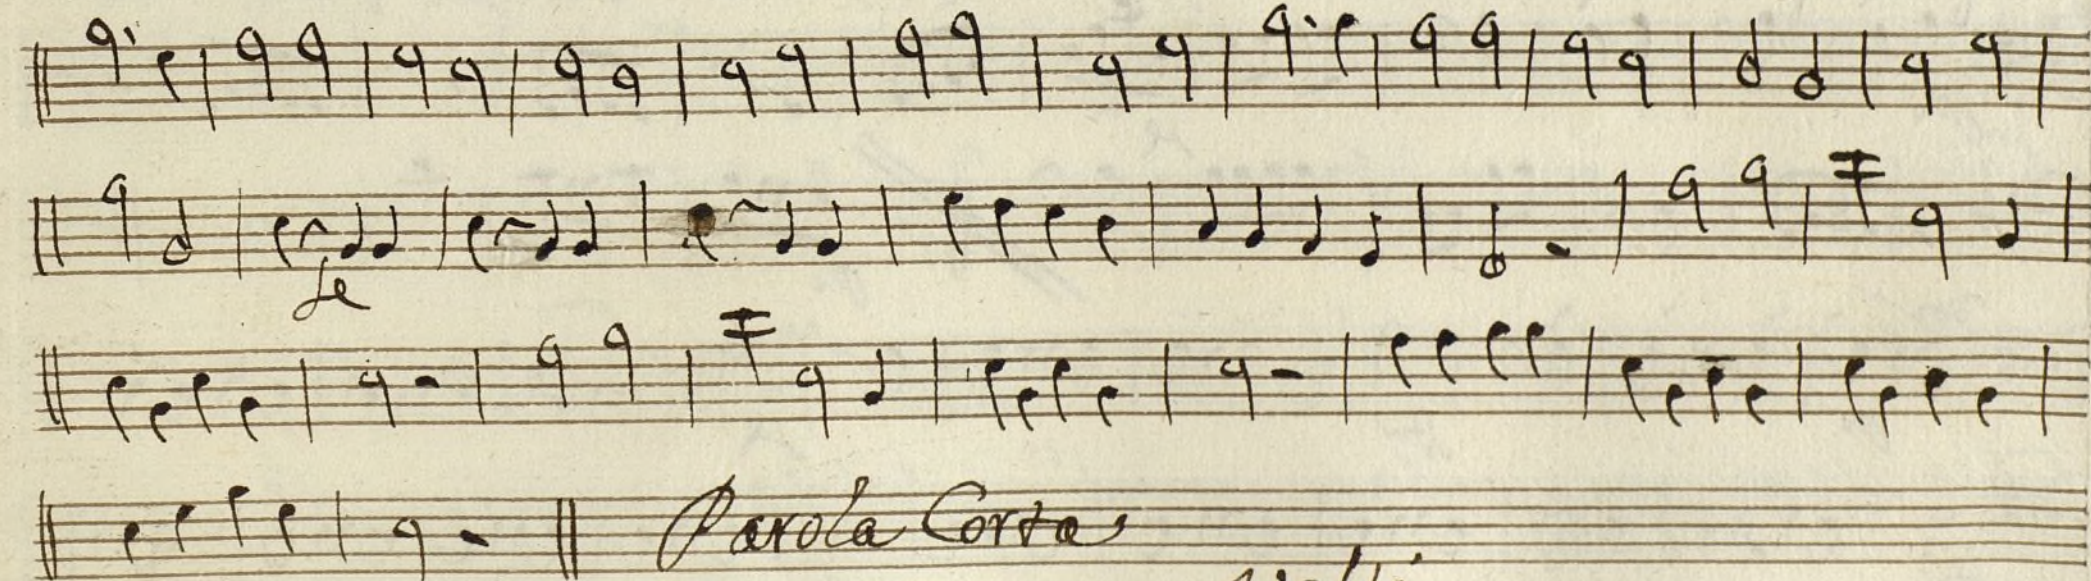 Le
Parola Corta